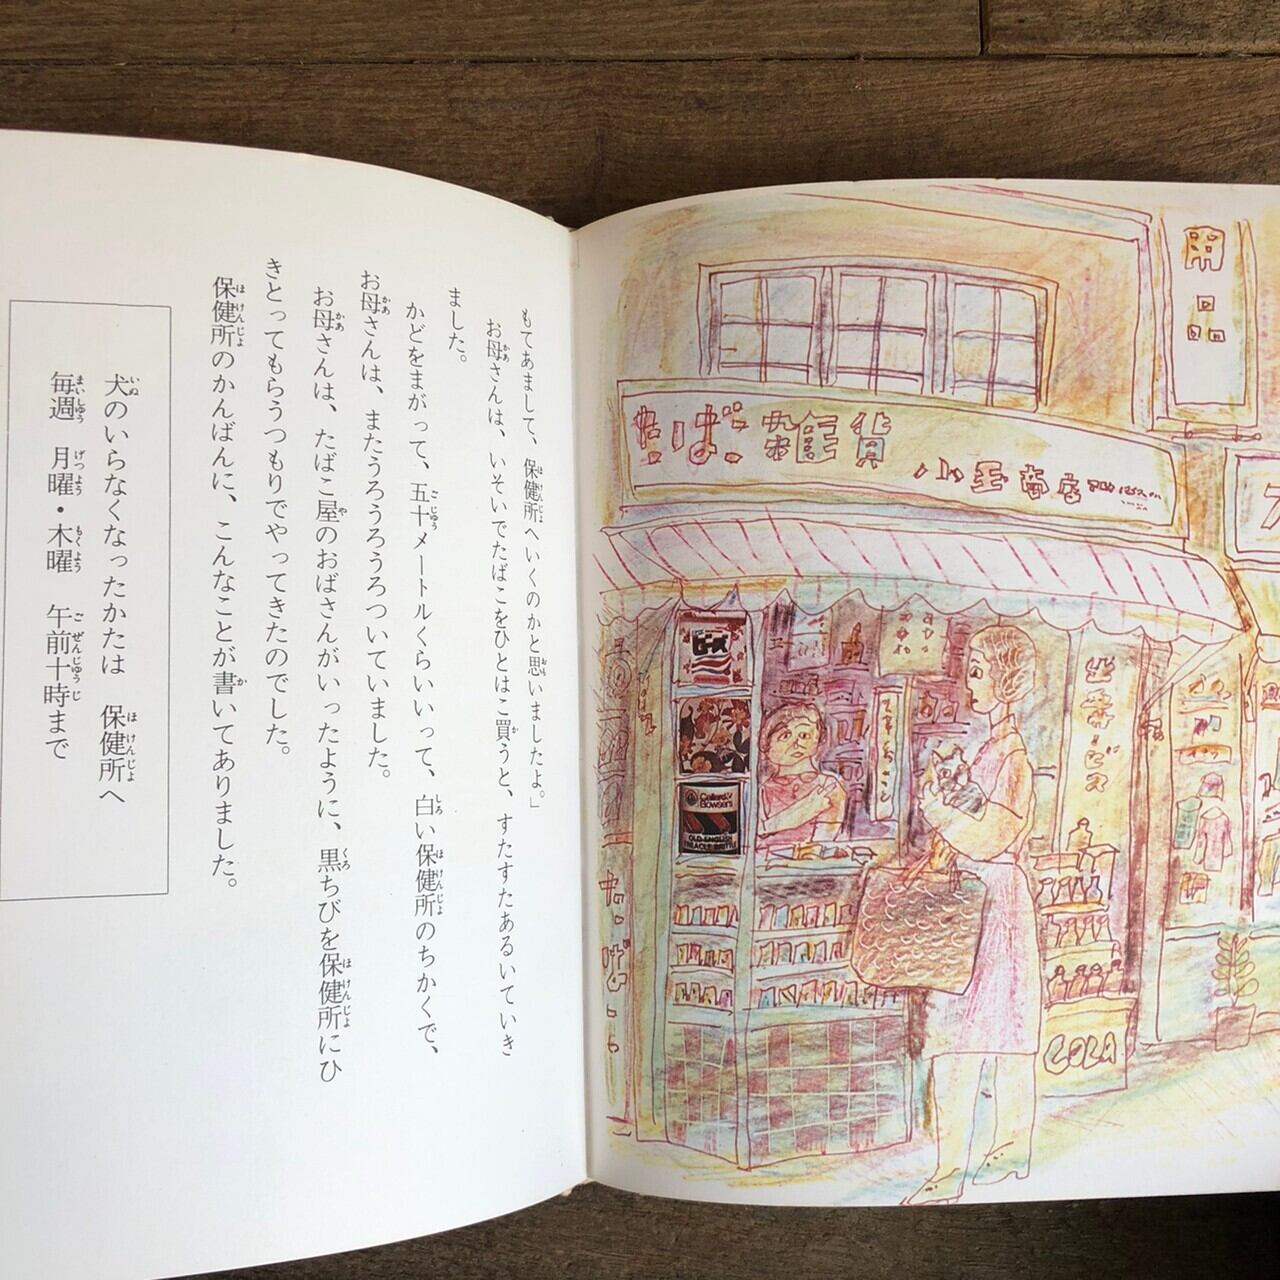 もてあまして、保健所へいくのかと思いましたよ。」
お母さんは、いそいでたばこをひとはこ買うと、すたすたあるいていき
ました。
かどをまがって、五十メートルくらいいって、白い保健所のちかくで、
お母さんは、またうろうろうろついていました。
お母さんは、たばこ屋のおばさんがいったように、黒ちびを保健所にひ
きとってもらうつもりでやってきたのでした。
保健所のかんばんに、こんなことが書いてありました。
犬のいらなくなったかたは 保健所へ
毎週 月曜・木曜 午前十時まで
たばこ 雑貨 小玉商店
Callard &
Bowser's
OLD ENGLISH
COLA